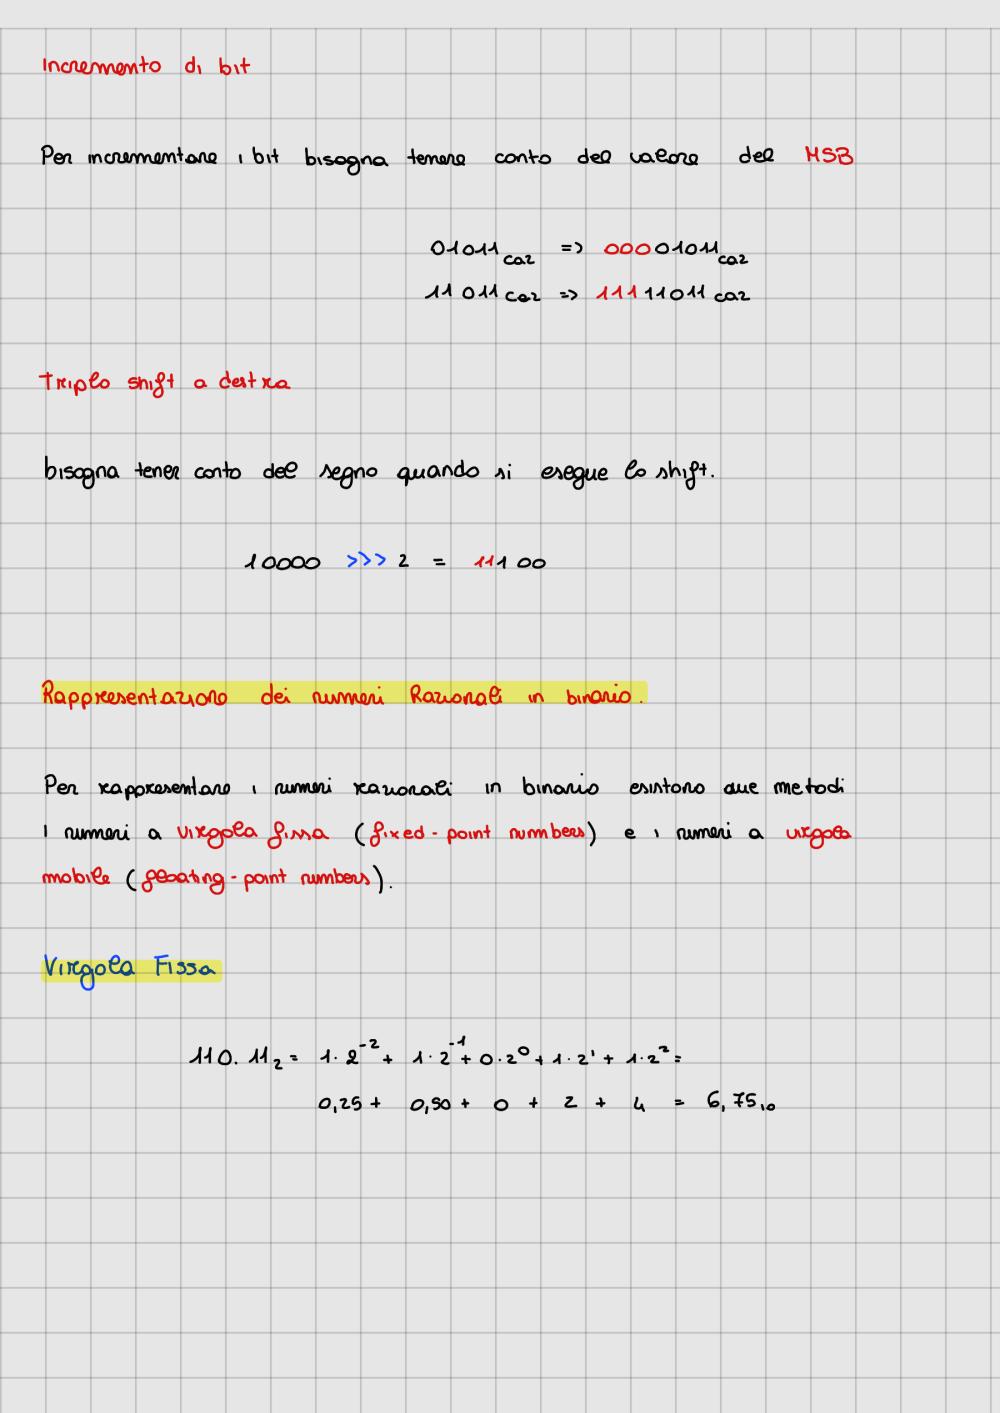 Incremento di bit
Per incrementare i bit bisogna tenere conto del valore del MSB
01011 ca2 => 00001011 ca2
11011 ca2 => 11111011 ca2
Triplo shift a destra
bisogna tener conto del segno quando si esegue lo shift.
10000 >>> 2 = 11100
Rappresentazione dei numeri Razionali in binario.
Per rappresentare i numeri razionali in binario esistono due metodi
i numeri a virgola fissa (fixed-point numbers) e i numeri a virgola
mobile (floating-point numbers).
Virgola Fissa
110.11₂ = 1·2⁻² + 1·2⁻¹ + 0·2⁰ + 1·2¹ + 1·2² =
0,25 + 0,50 + 0 + 2 + 4 = 6,75₁₀